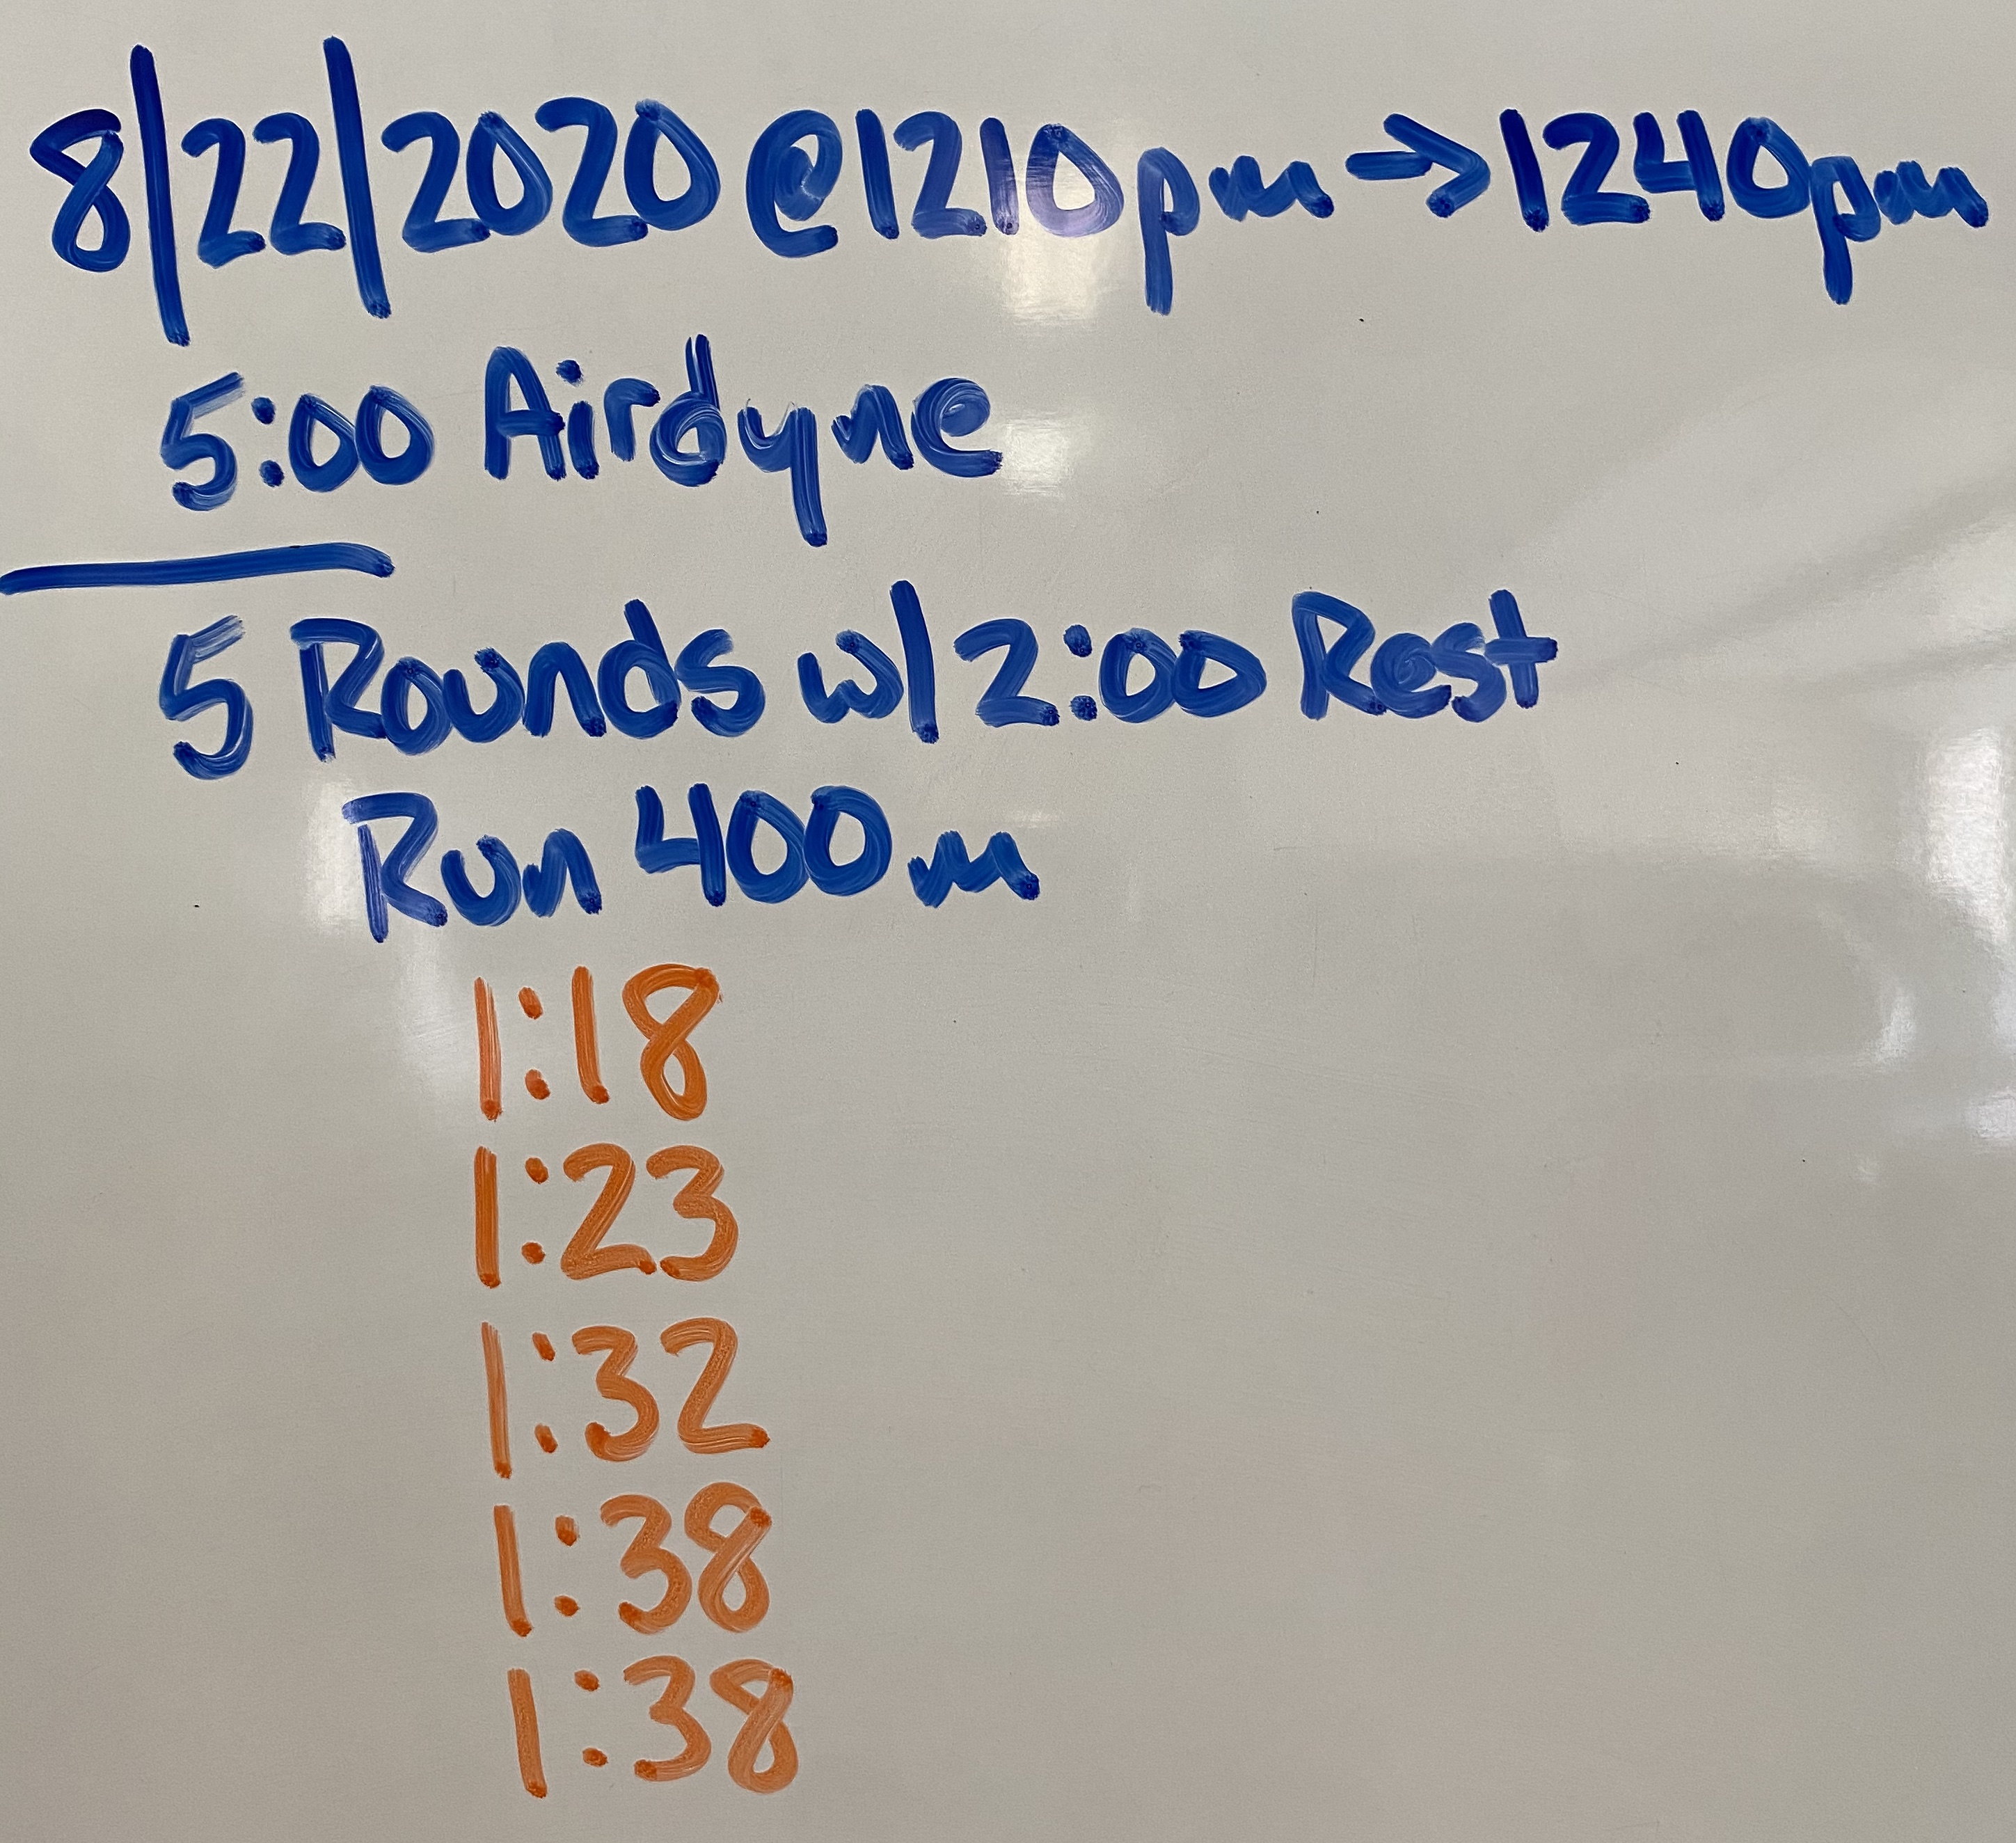 8/22/2020 @ 1210pm → 1240pm
5:00 Airdyne
5 Rounds w/ 2:00 Rest
Run 400m
1:18
1:23
1:32
1:38
1:38